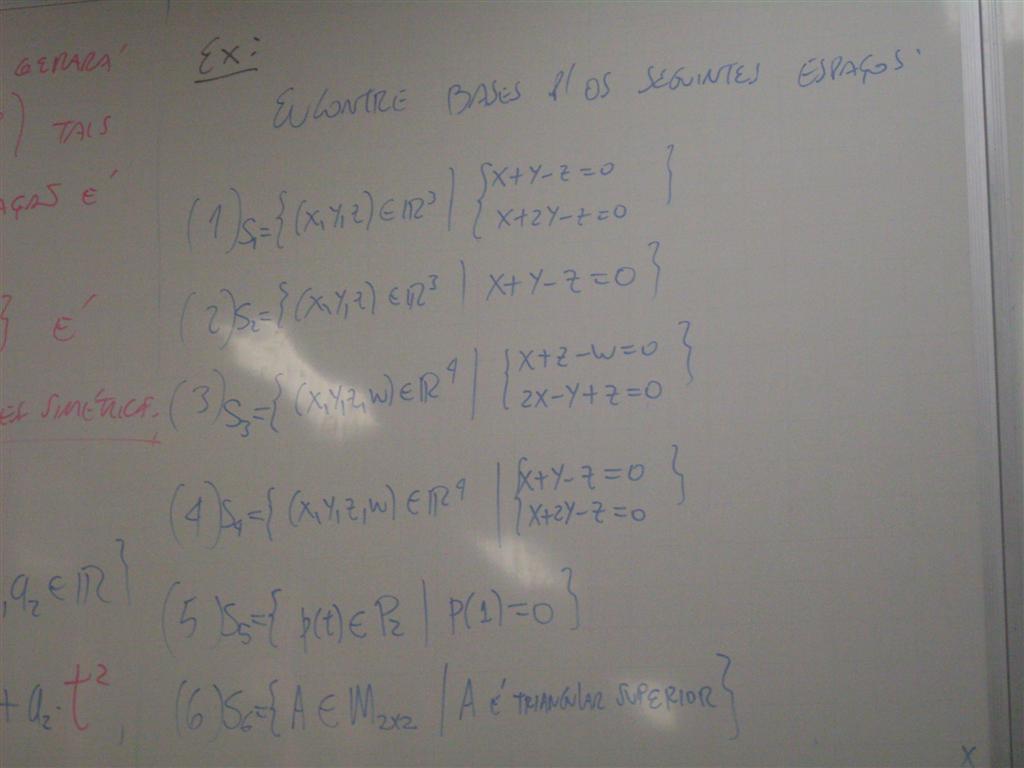 GERARÁ
) TAIS
AÇÃO É
} É
SIMÉTRICA.
, a₂ ∈ ℝ}
+ a₂·t²,
Ex:
ENCONTRE BASES P/ OS SEGUINTES ESPAÇOS:
(1) S₁={(X,Y,Z) ∈ ℝ³ | { X+Y-Z=0
X+2Y-Z=0 }
(2) S₂={(X,Y,Z) ∈ ℝ³ | X+Y-Z=0}
(3) S₃={(X,Y,Z,W) ∈ ℝ⁴ | { X+Z-W=0
2X-Y+Z=0 }
(4) S₄={(X,Y,Z,W) ∈ ℝ⁴ | { X+Y-Z=0
X+2Y-Z=0 }
(5) S₅={p(t) ∈ P₂ | p(1)=0}
(6) S₆={A ∈ M₂ₓ₂ | A É TRIANGULAR SUPERIOR}
X